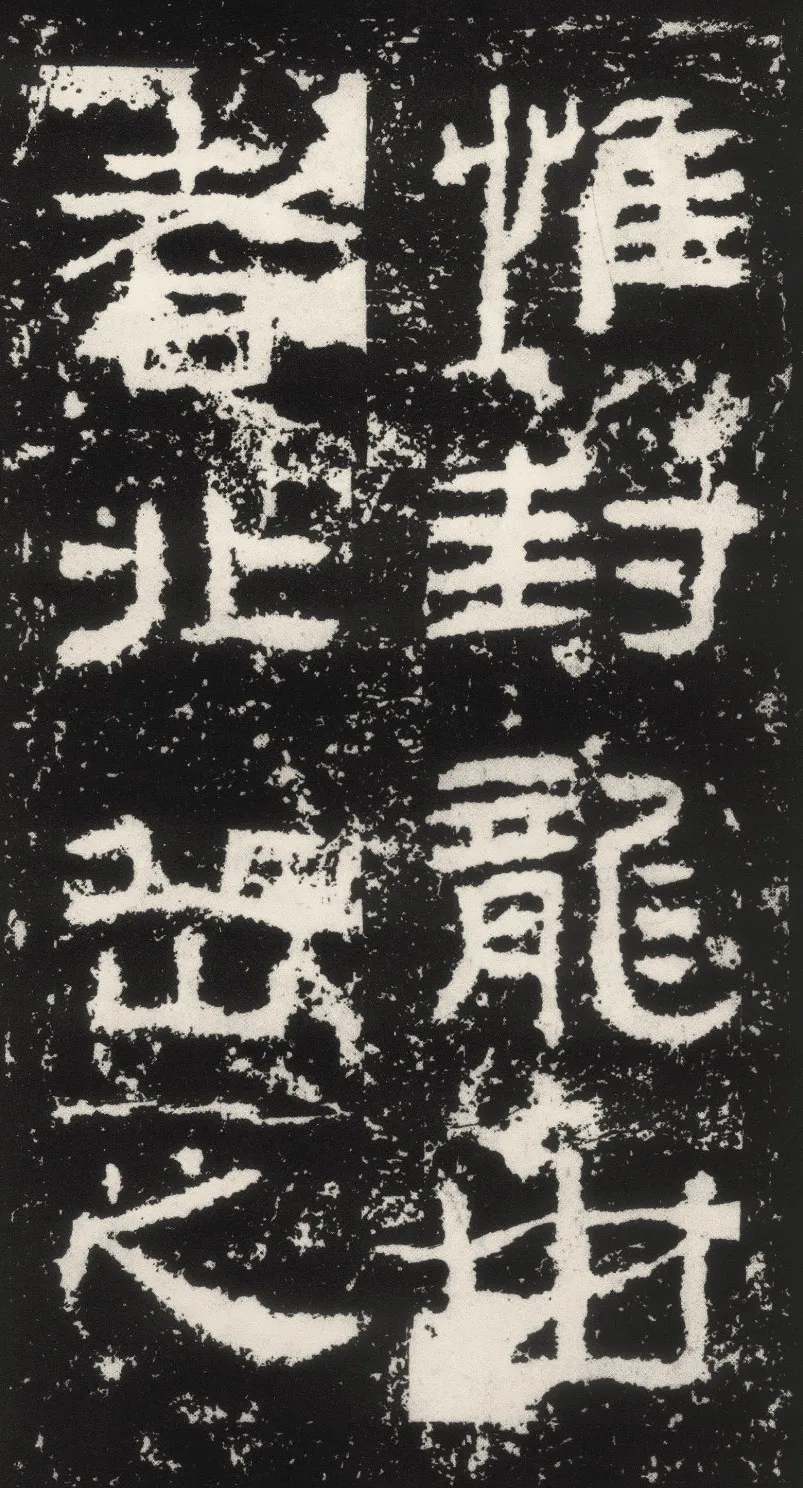 惟封龍山
者北岳之